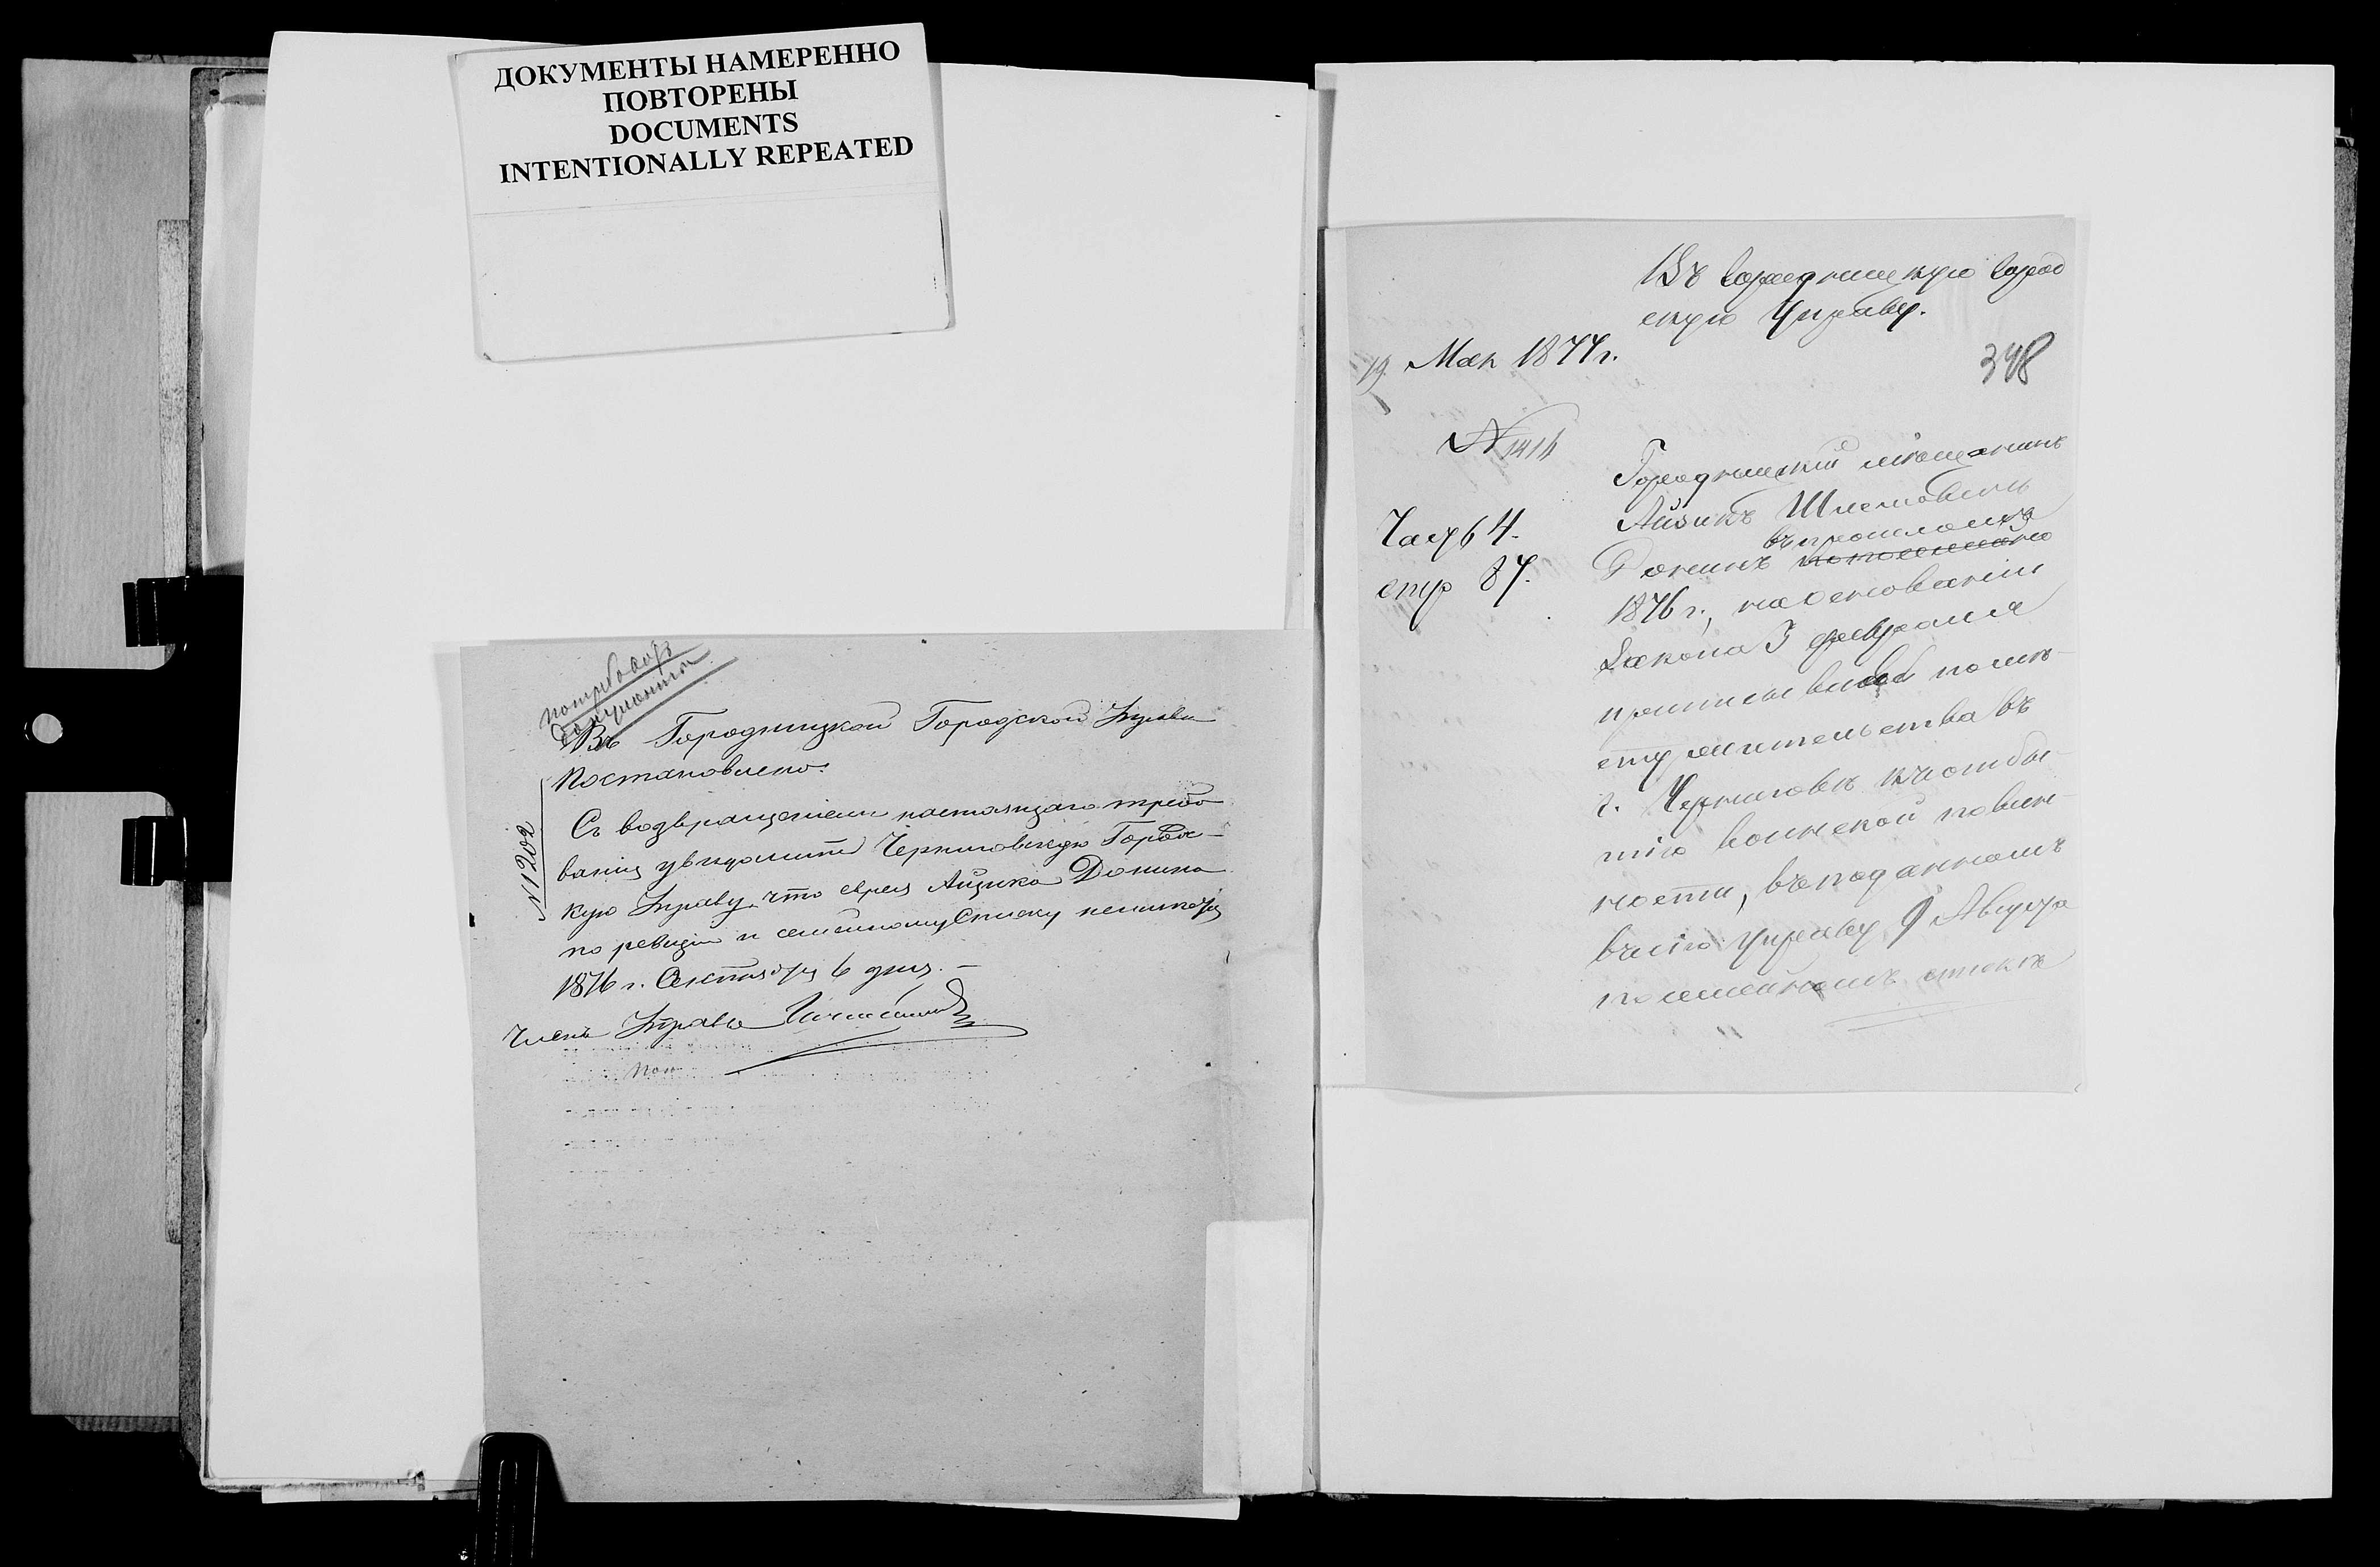 ДОКУМЕНТЫ НАМЕРЕННО
ПОВТОРЕНЫ
DOCUMENTS
INTENTIONALLY REPEATED
потребовать
документы
Въ Городницкой Городской Управе
Постановлено:
№ 1202
Съ возвращеніемъ настоящаго требо
ванія увѣдомить Черниговскую Городс-
кую Управу, что еврея Айзика Донина
по ревизіи и семейному списку неимеется
1876 г. Сентября 6 дня. —
Членъ Управы
Въ Городницкую Город
скую Управу.
19 Мая 1877 г.
348
№ 1416
Часть 4.
стр 87.
Городницкій мѣщанинъ
Айзикъ Шлемовичъ
въ прошломъ
Донинъ
1876 г., на основаніи
Закона 3 февраля
приписывался по мѣ-
сту жительства въ
г. Черниговѣ къ отбы-
тію воинской повин-
ности, въ поданномъ
въ сію Управу 9 Августа
посемейномъ спискѣ